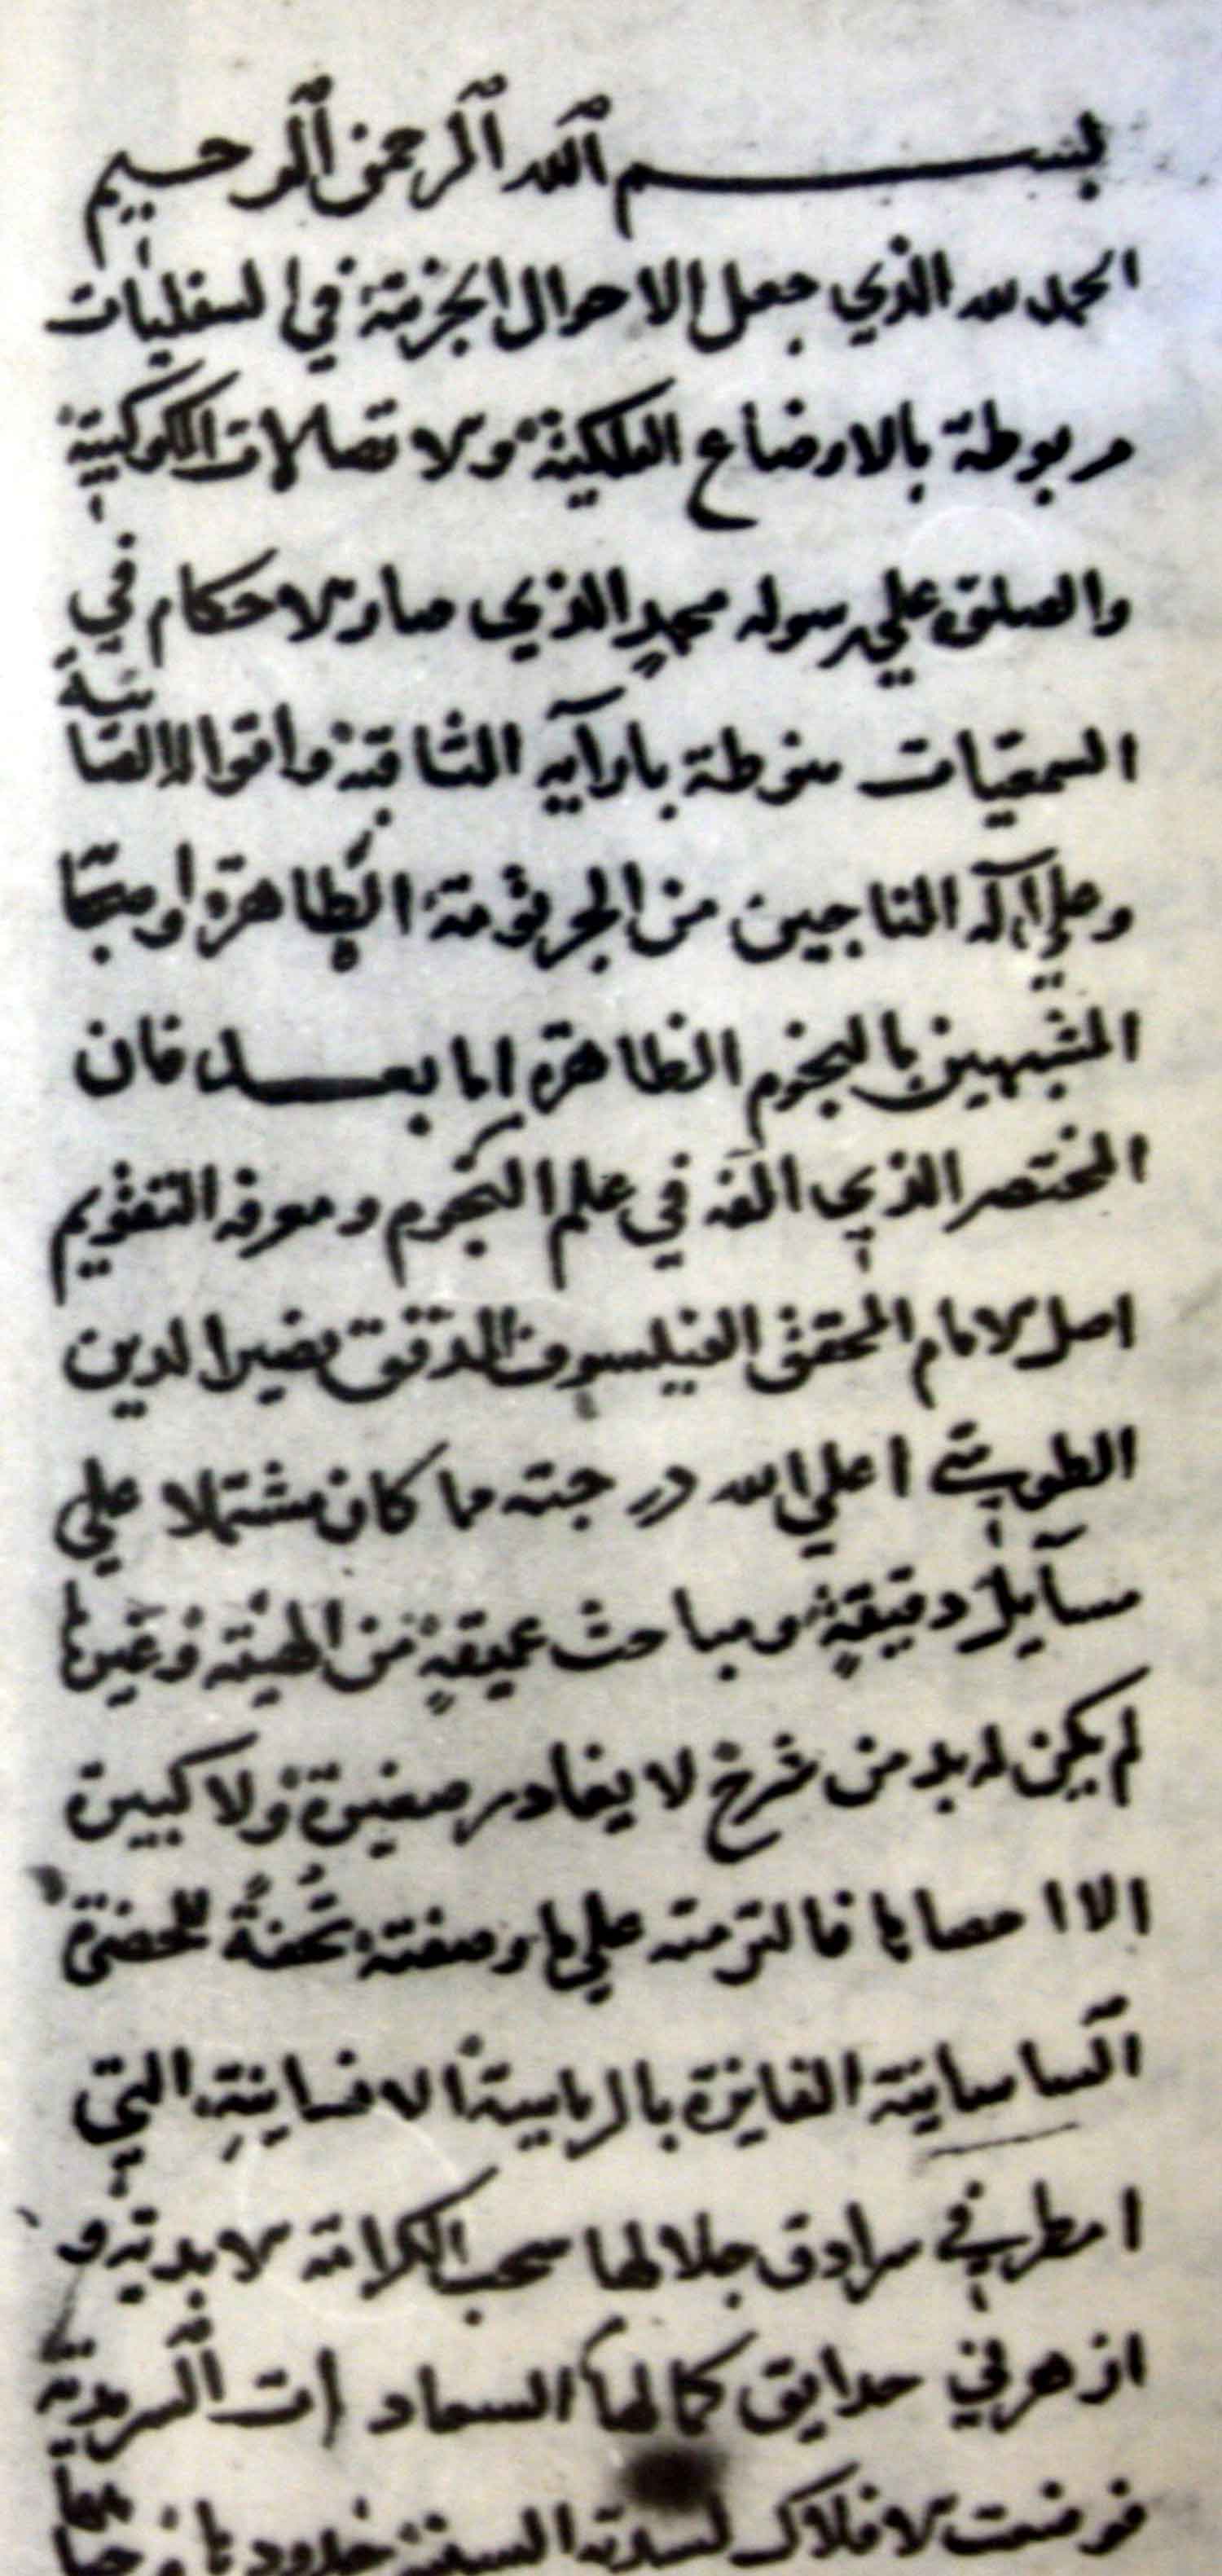 بسم الله الرحمن الرحيم
الحمد لله الذي جعل الاحوال الجزئية في السفليات
مربوطة بالاوضاع الفلكية والاتصالات الكوكبية
والصلوة علي رسوله محمد الذي صار الاحكام في
السمعيات منوطة بارآيه الثاقبة واقواله
وعلي آله الناجين من الجرثومة الطاهرة
المشبهين بالنجوم الظاهرة اما بعد فان
المختصر الذي الفه في علم النجوم ومعرفة التقويم
الامام المحقق الفيلسوف المدقق نصير الدين
الطوسي اعلي الله درجته ما كان مشتملا علي
مسآيل دقيقة ومباحث عميقة من الهيئة وغيرها
لم يكن له بد من شرح لا يغادر صغيرة ولا كبيرة
الا احصاها فالتزمته علي ما وصفته تحفة للحضرة
الساسانية الفايزة بالرياسة الانسانية التي
امطر في سرادق جلالها سحب الكرامة الابدية و
ازهر في حدايق كمالها السعادات السرمدية
الافلاك لسدته السنية خدودها